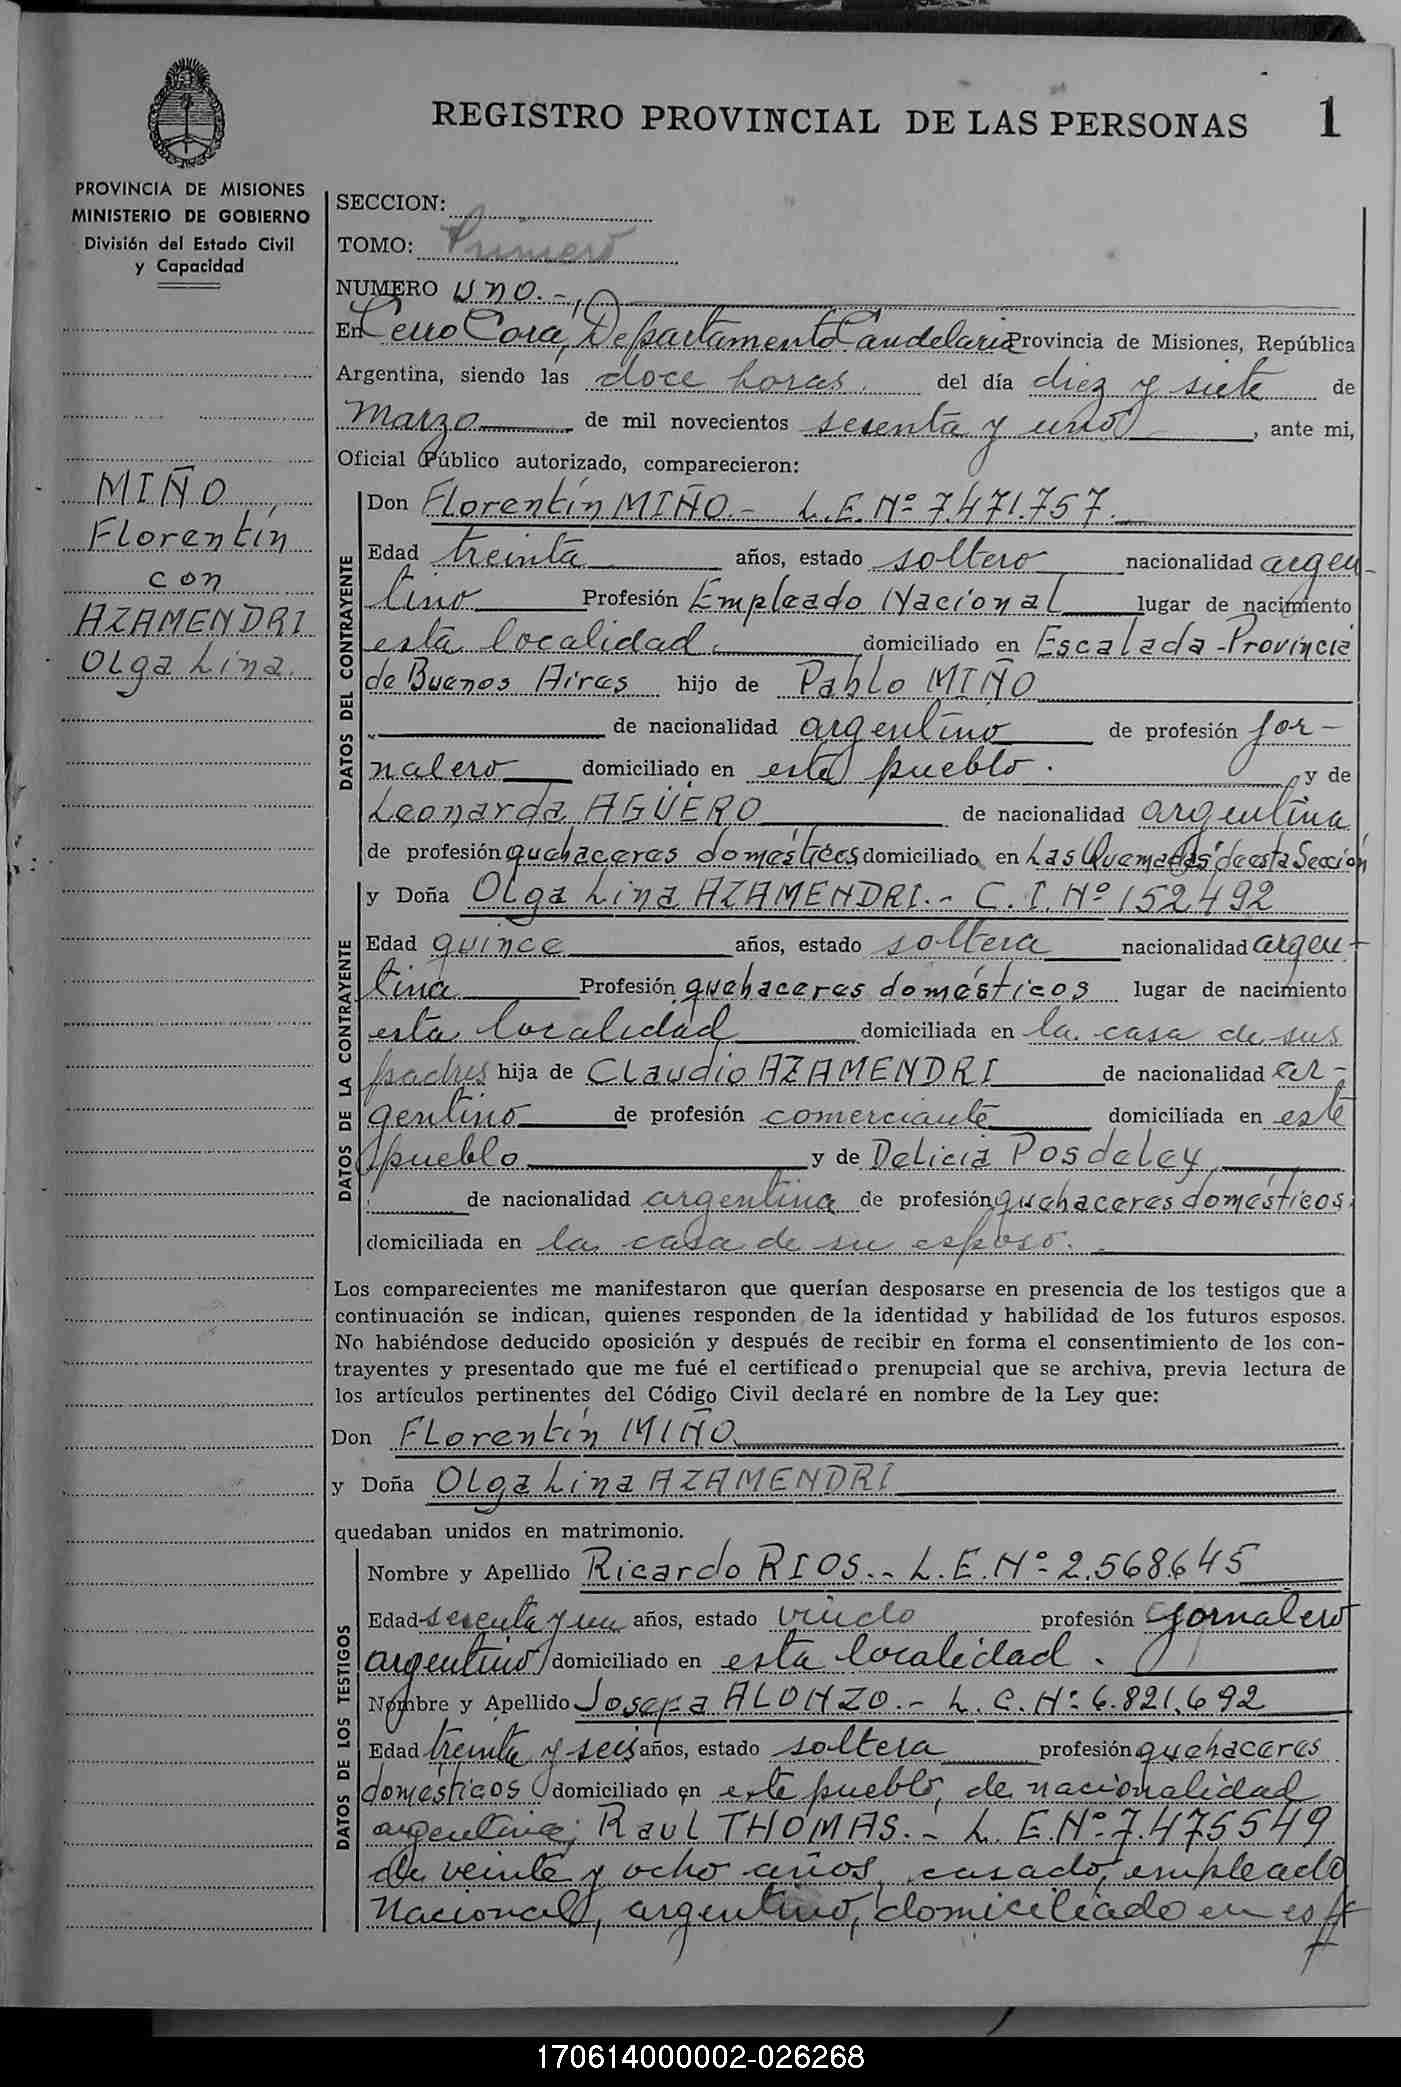 REGISTRO PROVINCIAL DE LAS PERSONAS 1
PROVINCIA DE MISIONES
MINISTERIO DE GOBIERNO
División del Estado Civil
y Capacidad
MIÑO
Florentín
con
AZAMENDRI
Olga Lina.
SECCION:
TOMO: Primero
NUMERO UNO.-
En Cerro Corá, Departamento Candelaria Provincia de Misiones, República
Argentina, siendo las doce horas. del día diez y siete de
Marzo de mil novecientos sesenta y uno, ante mi,
Oficial Público autorizado, comparecieron:
DATOS DEL CONTRAYENTE
Don Florentín MIÑO.- L.E.Nº 7.471.757.
Edad treinta años, estado soltero nacionalidad argen-
tino Profesión Empleado Nacional lugar de nacimiento
esta localidad. domiciliado en Escalada-Provincia
de Buenos Aires hijo de Pablo MIÑO
de nacionalidad argentino de profesión jor-
nalero domiciliado en este pueblo. y de
Leonarda AGÜERO de nacionalidad argentina
de profesión quehaceres domésticos domiciliado en Las Quemadas de esta Sección
DATOS DE LA CONTRAYENTE
y Doña Olga Lina AZAMENDRI.- C.I.Nº 152.492
Edad quince años, estado soltera nacionalidad argen-
tina Profesión quehaceres domésticos lugar de nacimiento
esta localidad domiciliada en la casa de sus
padres hija de Claudio AZAMENDRI de nacionalidad ar-
gentino de profesión comerciante domiciliada en este
pueblo y de Delicia Posdeley
de nacionalidad argentina de profesión quehaceres domésticos.
domiciliada en la casa de su esposo.
Los comparecientes me manifestaron que querían desposarse en presencia de los testigos que a
continuación se indican, quienes responden de la identidad y habilidad de los futuros esposos.
No habiéndose deducido oposición y después de recibir en forma el consentimiento de los con-
trayentes y presentado que me fué el certificado prenupcial que se archiva, previa lectura de
los artículos pertinentes del Código Civil declaré en nombre de la Ley que:
Don Florentín MIÑO
y Doña Olga Lina AZAMENDRI
quedaban unidos en matrimonio.
DATOS DE LOS TESTIGOS
Nombre y Apellido Ricardo RIOS.- L.E.Nº 2.568.645
Edad sesenta y un años, estado viudo profesión jornalero
argentino domiciliado en esta localidad.
Nombre y Apellido Josefa ALONZO.- L.C.Nº 6.821.692
Edad treinta y seis años, estado soltera profesión quehaceres
domésticos domiciliado en este pueblo, de nacionalidad
argentina; Raul THOMAS.- L.E.Nº 7.475549
de veinte y ocho años, casado, empleado
Nacional, argentino, domiciliado en es
170614000002-026268